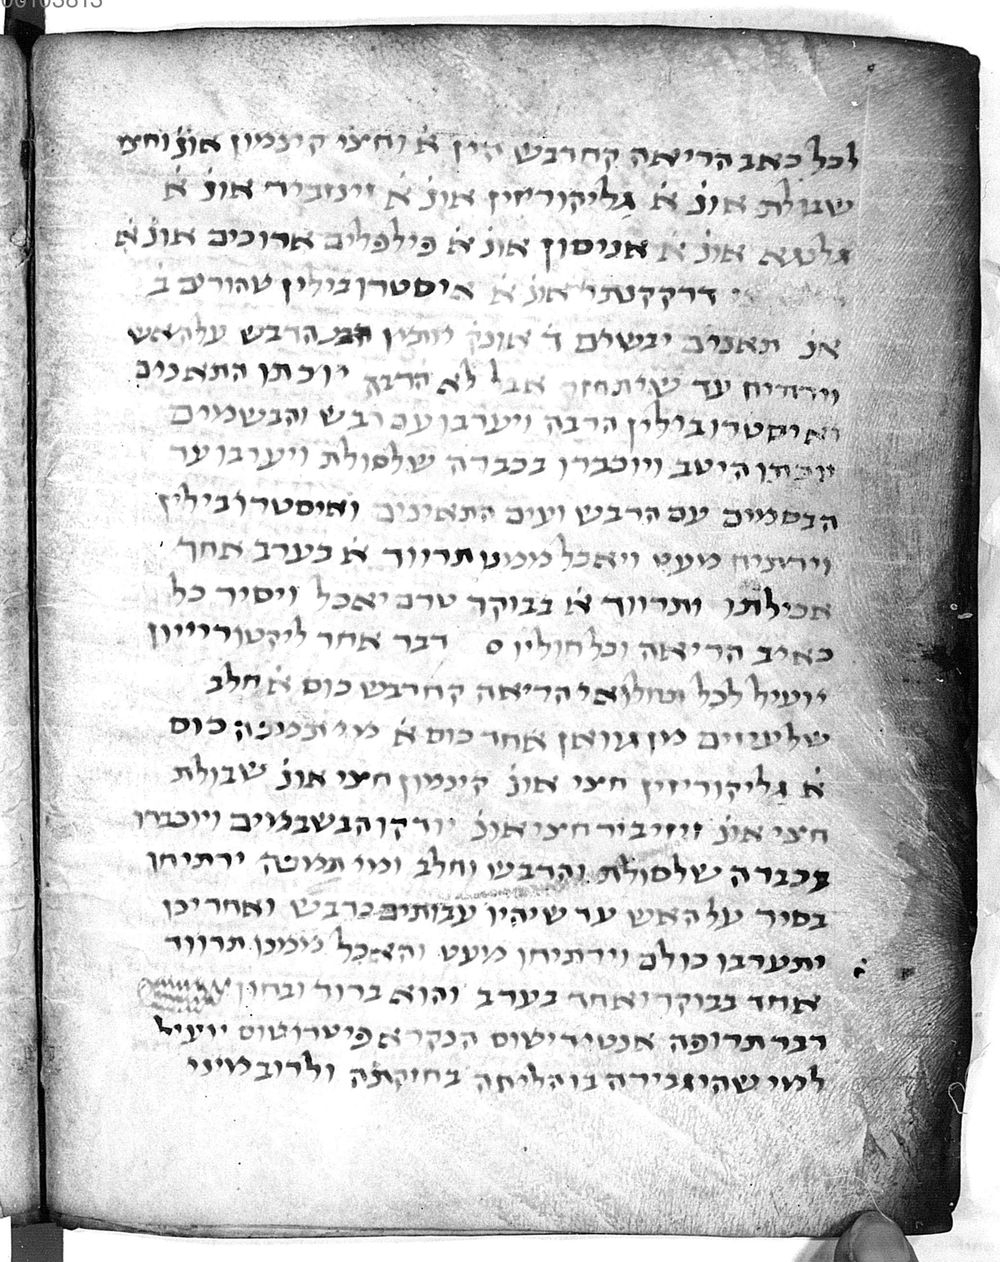 00103813
לכל כאב הריאה קח דבש הין א׳ וחצי קינמון אונ׳ וחצי
שבולת אונ׳ א׳ גליקוריזין אונ׳ א׳ זינזביר אונ׳ א׳
גלנגא אונ׳ א׳ אניסון אונ׳ א׳ פילפלים ארוכים אונ׳ א׳
דרקקנתי אונ׳ א׳ איסטרובילין טהורים ב׳
אנ׳ תאנים יבשים ד׳ אונק׳ הדבש על האש
וירתיח עד שיתחזק אבל לא הרבה יוכתו התאנים
ואיסטרובילין הרבה ויערבו עם דבש והבשמים
יוכתו היטב ויוכברו בכברה שלסולת ויערבו עד
הבסמים עם הדבש ועים התאינים ואיסטרובילין
וירתיח מעט ויאכל ממנו תרווד א׳ בערב אחר
אכילתו ותרווד א׳ בבוקר טרם יאכל ויסיר כל
כאיב הריאה וכל חוליו ס דבר אחר ליקטורייון
יועיל לכל תחלואי הריאה קח דבש כוס א׳ חלב
שלעיזים מן גוואן אחד כוס א׳ מי כוס
א׳ גליקוריזין חצי אונ׳ קינמון חצי אונ׳ שבולת
חצי אונ׳ זיזיביר חצי אונ׳ יודקו הבשבמים ויוכברו
בכברה שלסולת והדבש וחלב ומי ירתיחו
בסיר על האש עד שיהיו עבותים כדבש ואחריכן
יתערבו כולם וירתיחו מעט והאכל מימנו תרווד
אחד בבוקר ואחד בערב והוא ברור ובחון
דבר תרופה אנטידיטוס הנקרא פיטרוטוס יועיל
למי שהיגבירה בו הליחה בחוקתה ולרוב מיני